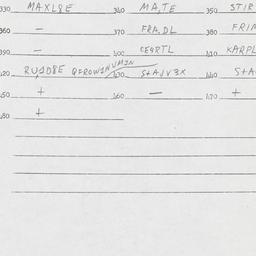 330 MAXL8E 340 MA,TE 350 STIR
360 — 370 FRA.DL 380 FRIN
390 — 400 CEQRTL 410 KARPL
420 RUJD8E QFROWINUMIN 430 StAJV3X 440 StA
450 + 460 — 470 +
480 +